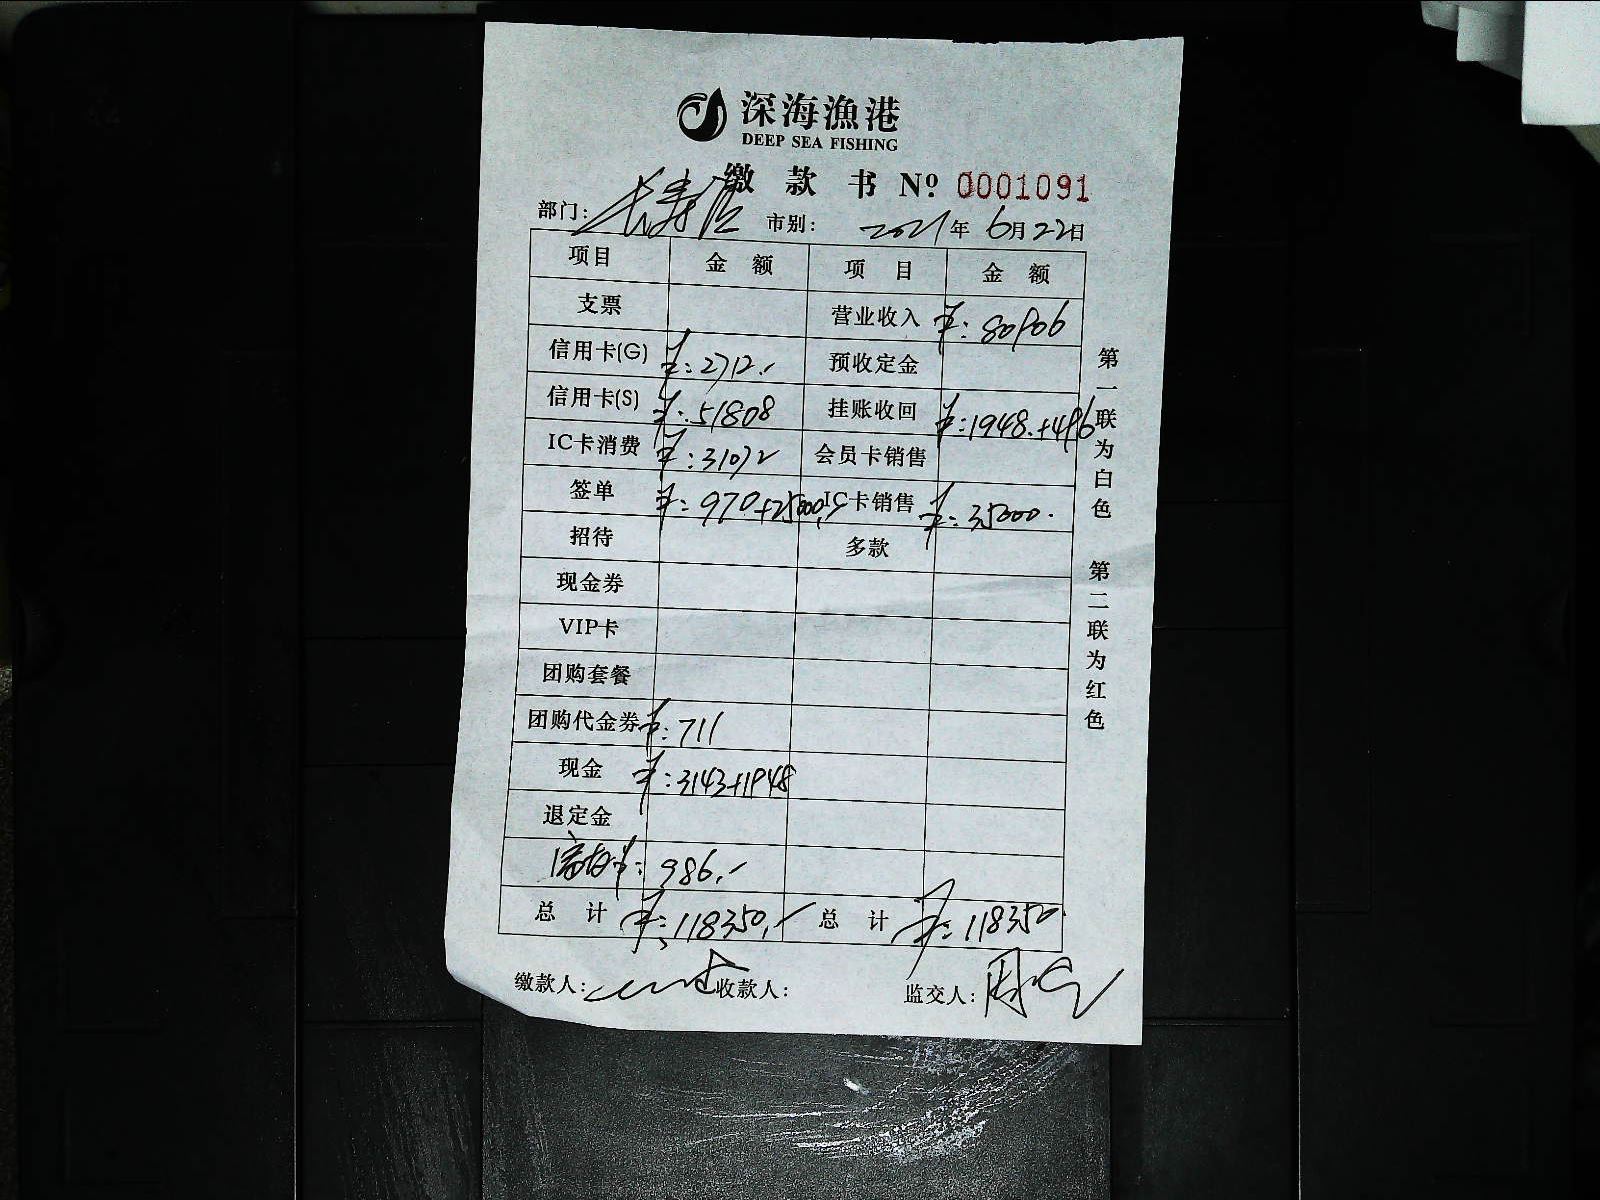 深海漁港
DEEP SEA FISHING
缴 款 书 Nº 0001091
部门: 长寿 市别: 2021年 6月22日
项目 金 额 项 目 金 额
支票 营业收入 ¥: 80906
信用卡(G) ¥: 2712.- 预收定金
信用卡(S) ¥: 51808 挂账收回 ¥: 1948.+496
IC卡消费 ¥: 31072 会员卡销售
签单 ¥: 970+25000 IC卡销售 ¥: 35000.
招待 多款
现金券
VIP卡
团购套餐
团购代金券 ¥: 711
现金 ¥: 3143+1948
退定金
信用卡: 986.-
总 计 ¥: 118350.- 总 计 ¥: 118350.
缴款人: 收款人: 监交人:
第一联为白色 第二联为红色